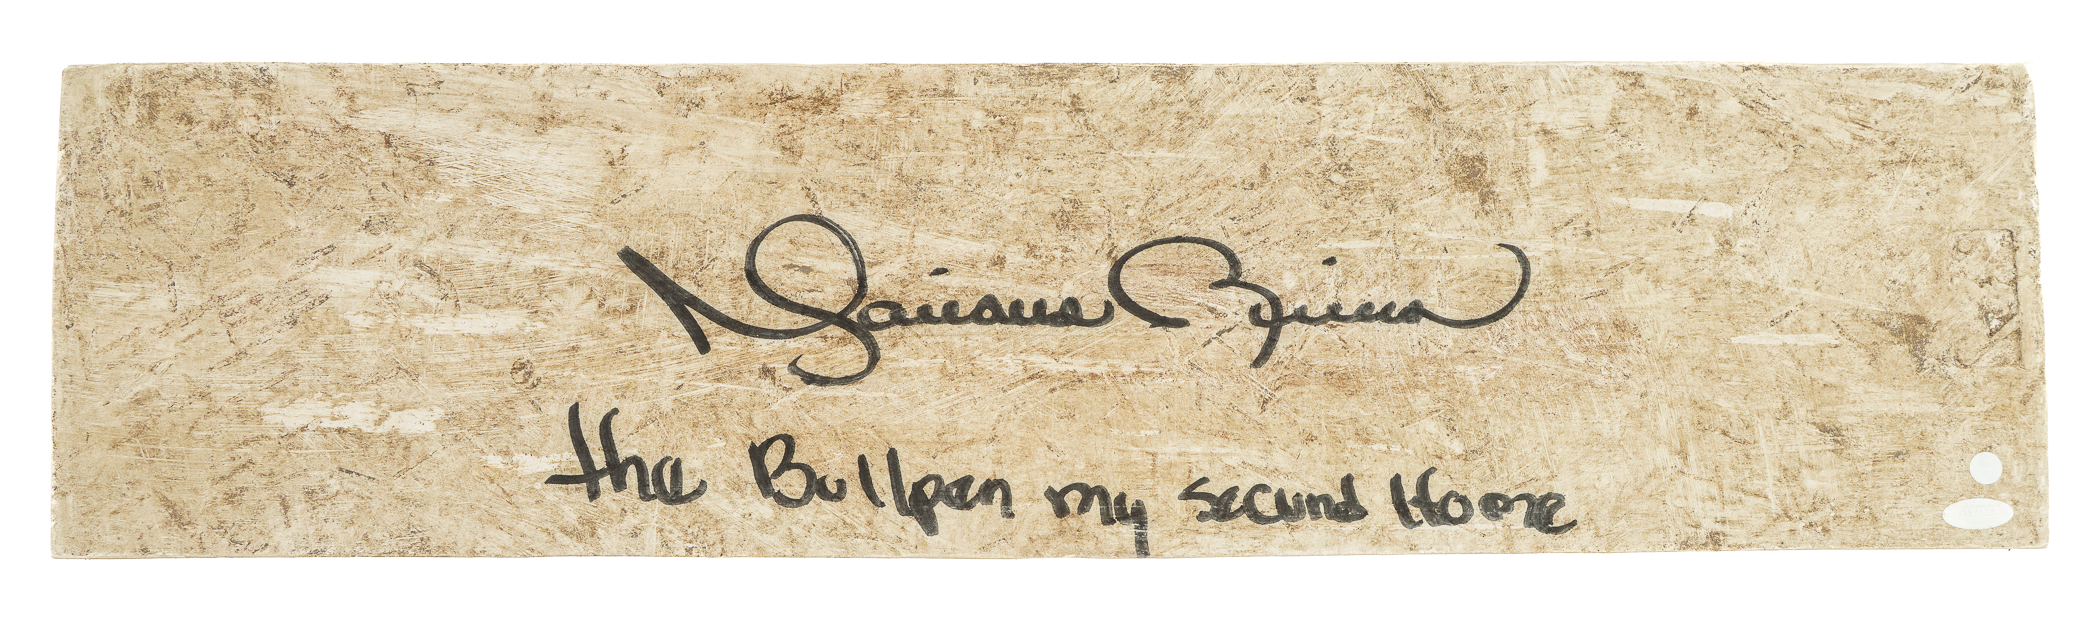 Mariano Rivera
the Bullpen my second Home